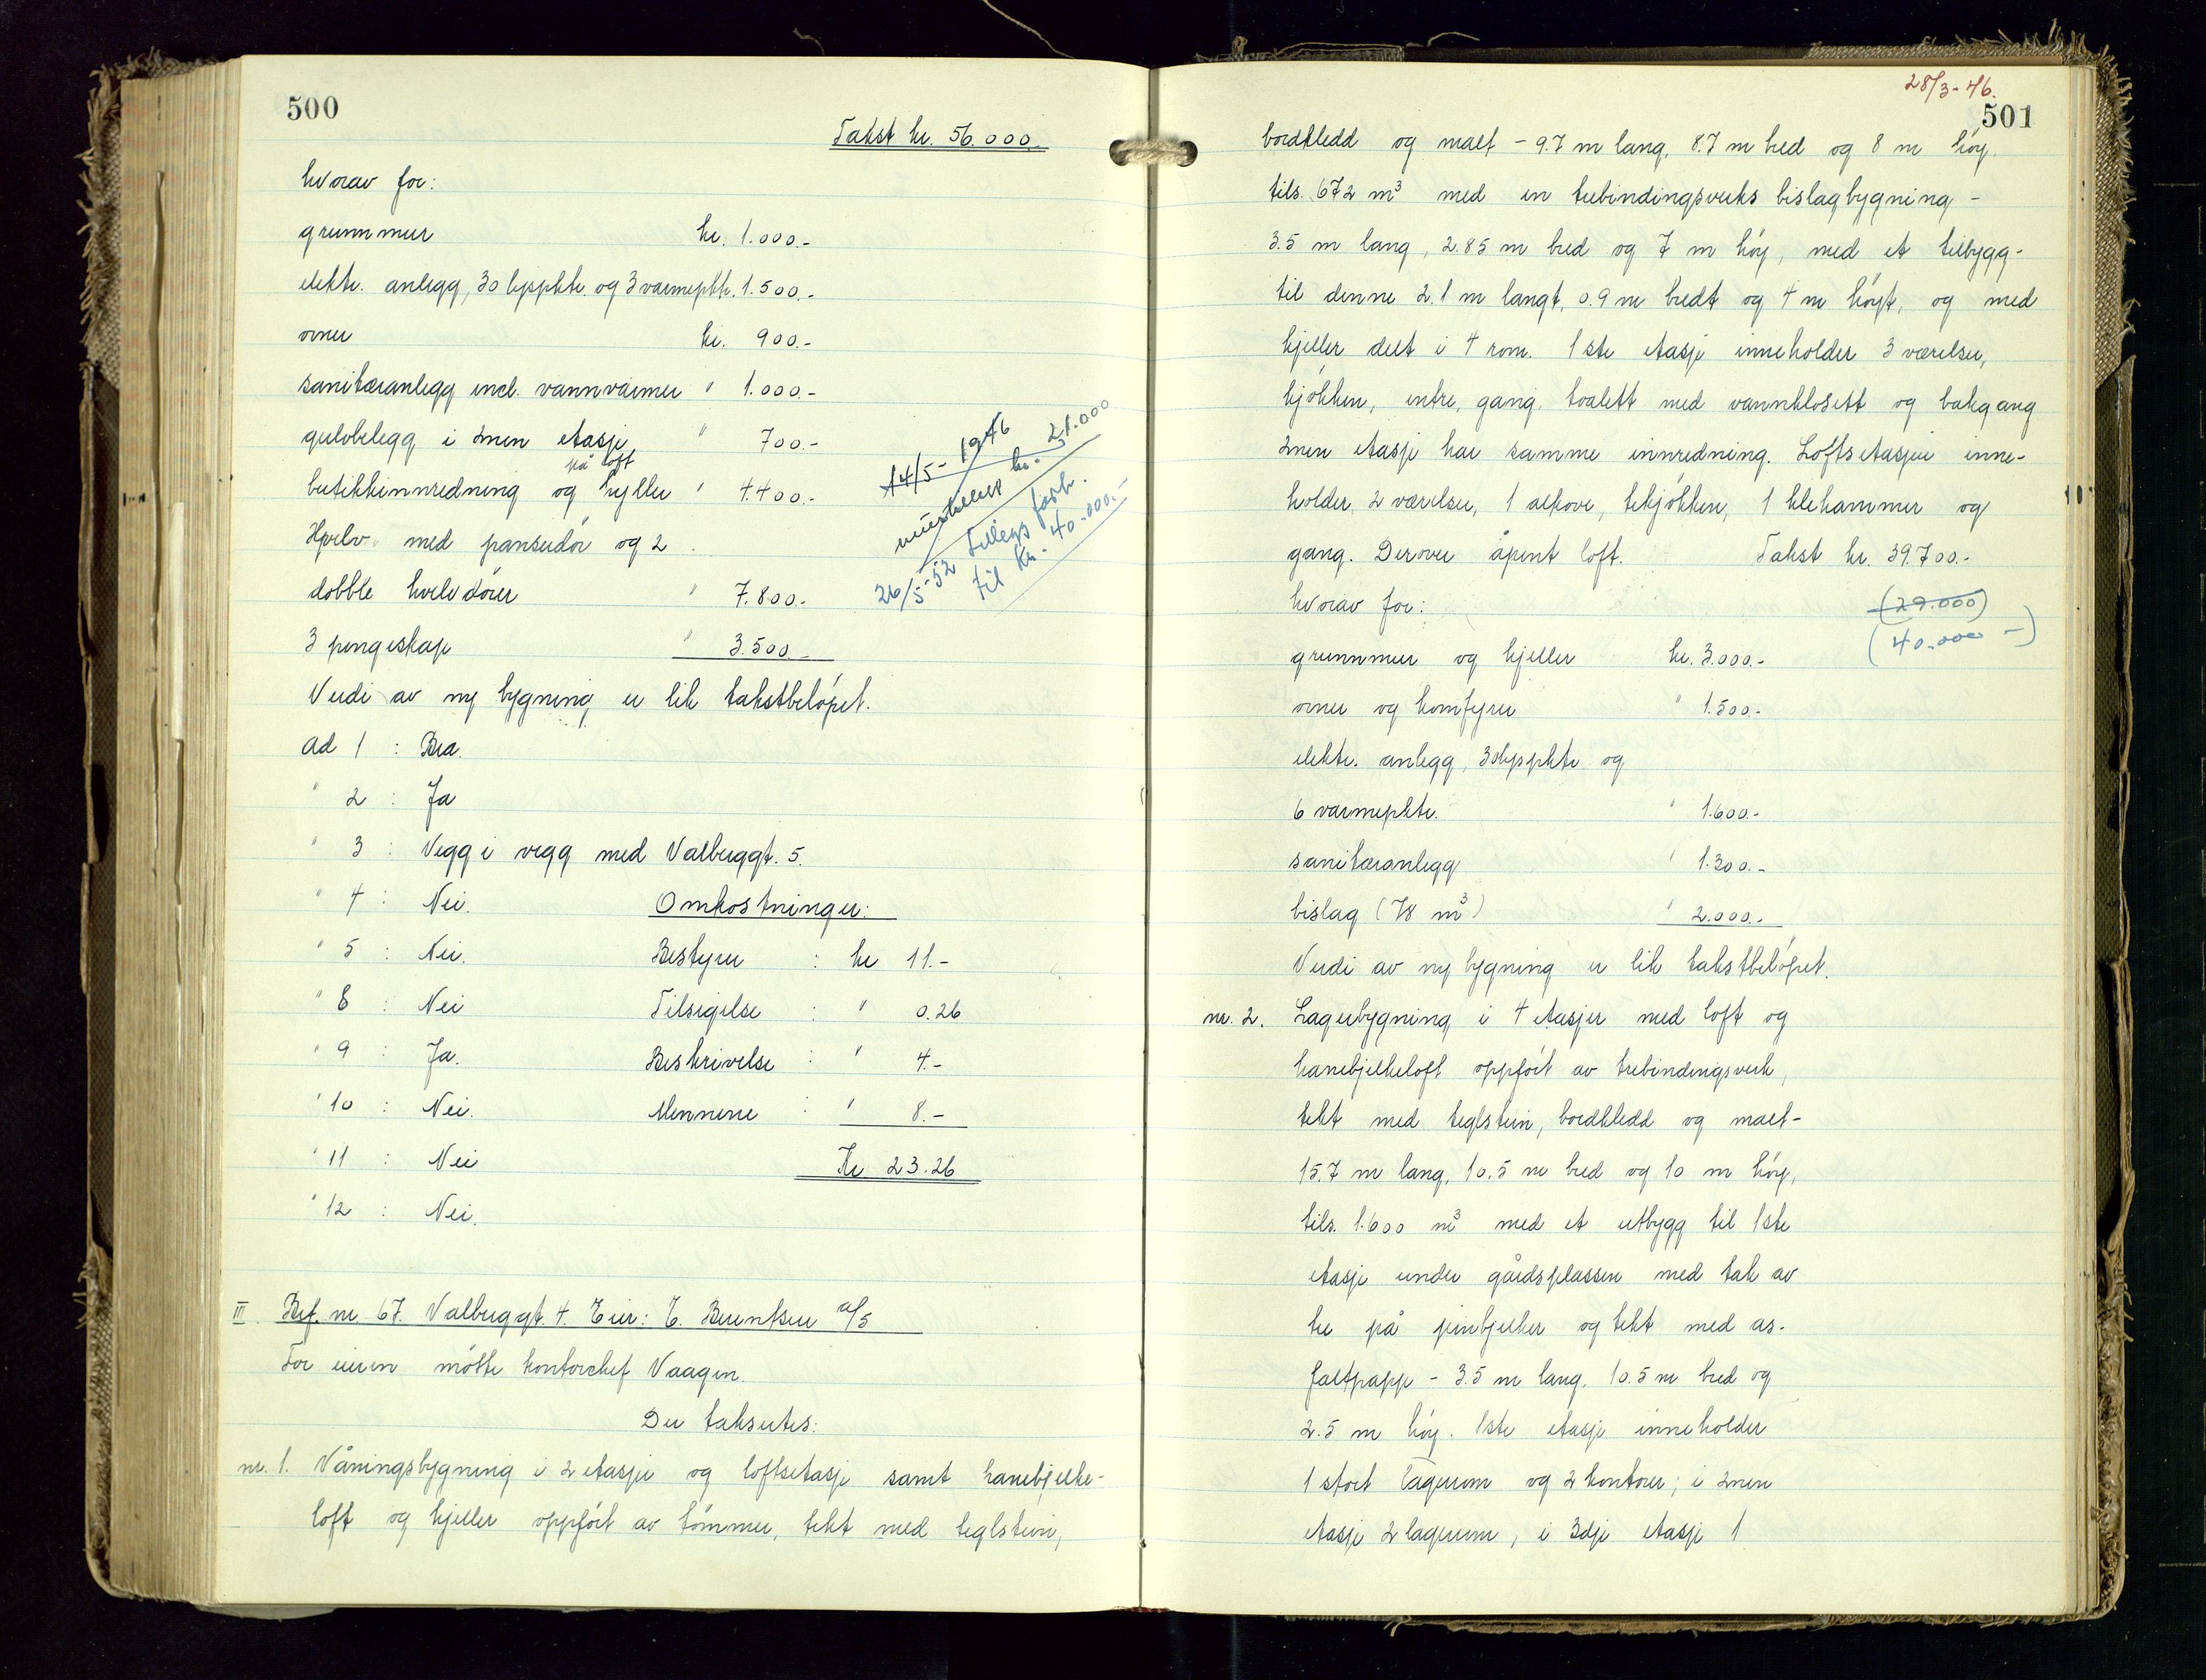 500
Takst kr. 56.000.-
hvorav for:
grunnmur kr. 1.000.-
elektr. anlegg, 30 lyspkte. og 3 varmepkte. 1.500.-
ovner kr. 900.-
sanitæranlegg incl. vannvarmer " 1.000.-
gulvbelegg i 2nen etasje " 700.-
på loft
butikkinnredning og hyller " 4.400.-
Hvelv med panserdør og 2
dobble hvelvdører " 7.800.-
3 pengeskap " 3.500.-
14/5- 1946
kr. 21.000
26/5-52 Tilleggs forh.
til Kr. 40.000.-
Verdi av ny bygning er lik takstbeløpet.
Ad 1 : Bra.
" 2 : Ja
" 3 : Vegg i vegg med Valberggt. 5.
" 4 : Nei. Omkostninger:
" 5 : Nei. Bestyrer : kr 11.-
" 8 : Nei Tilsigelse : " 0.26
" 9 : Ja. Beskrivelse : " 4.-
" 10 : Nei. Mennene : " 8.-
" 11 : Nei Kr 23.26
" 12 : Nei.
III. Brf. nr. 67. Valberggt. 4. Eier: E. Berentsen a/s
For eieren møtte kontorchef Vaagen.
Der takseres:
nr. 1. Våningsbygning i 2 etasjer og loftsetasje samt hanebjelke-
loft og kjeller oppført av tømmer, tekt med teglstein,
28/3-46.
501
bordkledd og malt - 9.7 m lang, 8.7 m bred og 8 m høy,
tils. 672 m³ med en trebindingsverks bislagbygning -
3.5 m lang, 2.85 m bred og 7 m høy, med et tilbygg-
til denne 2.1 m langt, 0.9 m bredt og 4 m høyt, og med
kjeller delt i 4 rom. 1ste etasje inneholder 3 værelser,
kjøkken, entre, gang, toalett med vannklosett og bakgang
2nen etasje har samme innredning. Loftsetasjen inne-
holder 2 værelser, 1 alkove, tekjøkken, 1 klekammer og
gang. Derover åpent loft. Takst kr. 39.700.-
hvorav for: (29.000)
(40.000 -)
grunnmur og kjeller kr. 3.000.-
ovner og komfyrer " 1.500.-
elektr. anlegg, 30 lyspkte og
6 varmepkte. " 1.600.-
sanitæranlegg " 1.300.-
bislag (78 m³) " 2.000.-
Verdi av ny bygning er lik takstbeløpet.
nr. 2. Lagerbygning i 4 etasjer med loft og
hanebjelkeloft oppført av trebindingsverk,
tekt med teglstein, bordkledd og malt-
15.7 m lang, 10.5 m bred og 10 m høy,
tils. 1.600 m³ med et utbygg til 1ste
etasje under gårdsplassen med tak av
tre på jernbjelker og tekt med as-
faltpapp - 3.5 m lang, 10.5 m bred og
2.5 m høy. 1ste etasje inneholder
1 stort lagerrom og 2 kontorer; i 2nen
etasje 2 lagerrom, i 3dje etasje 1